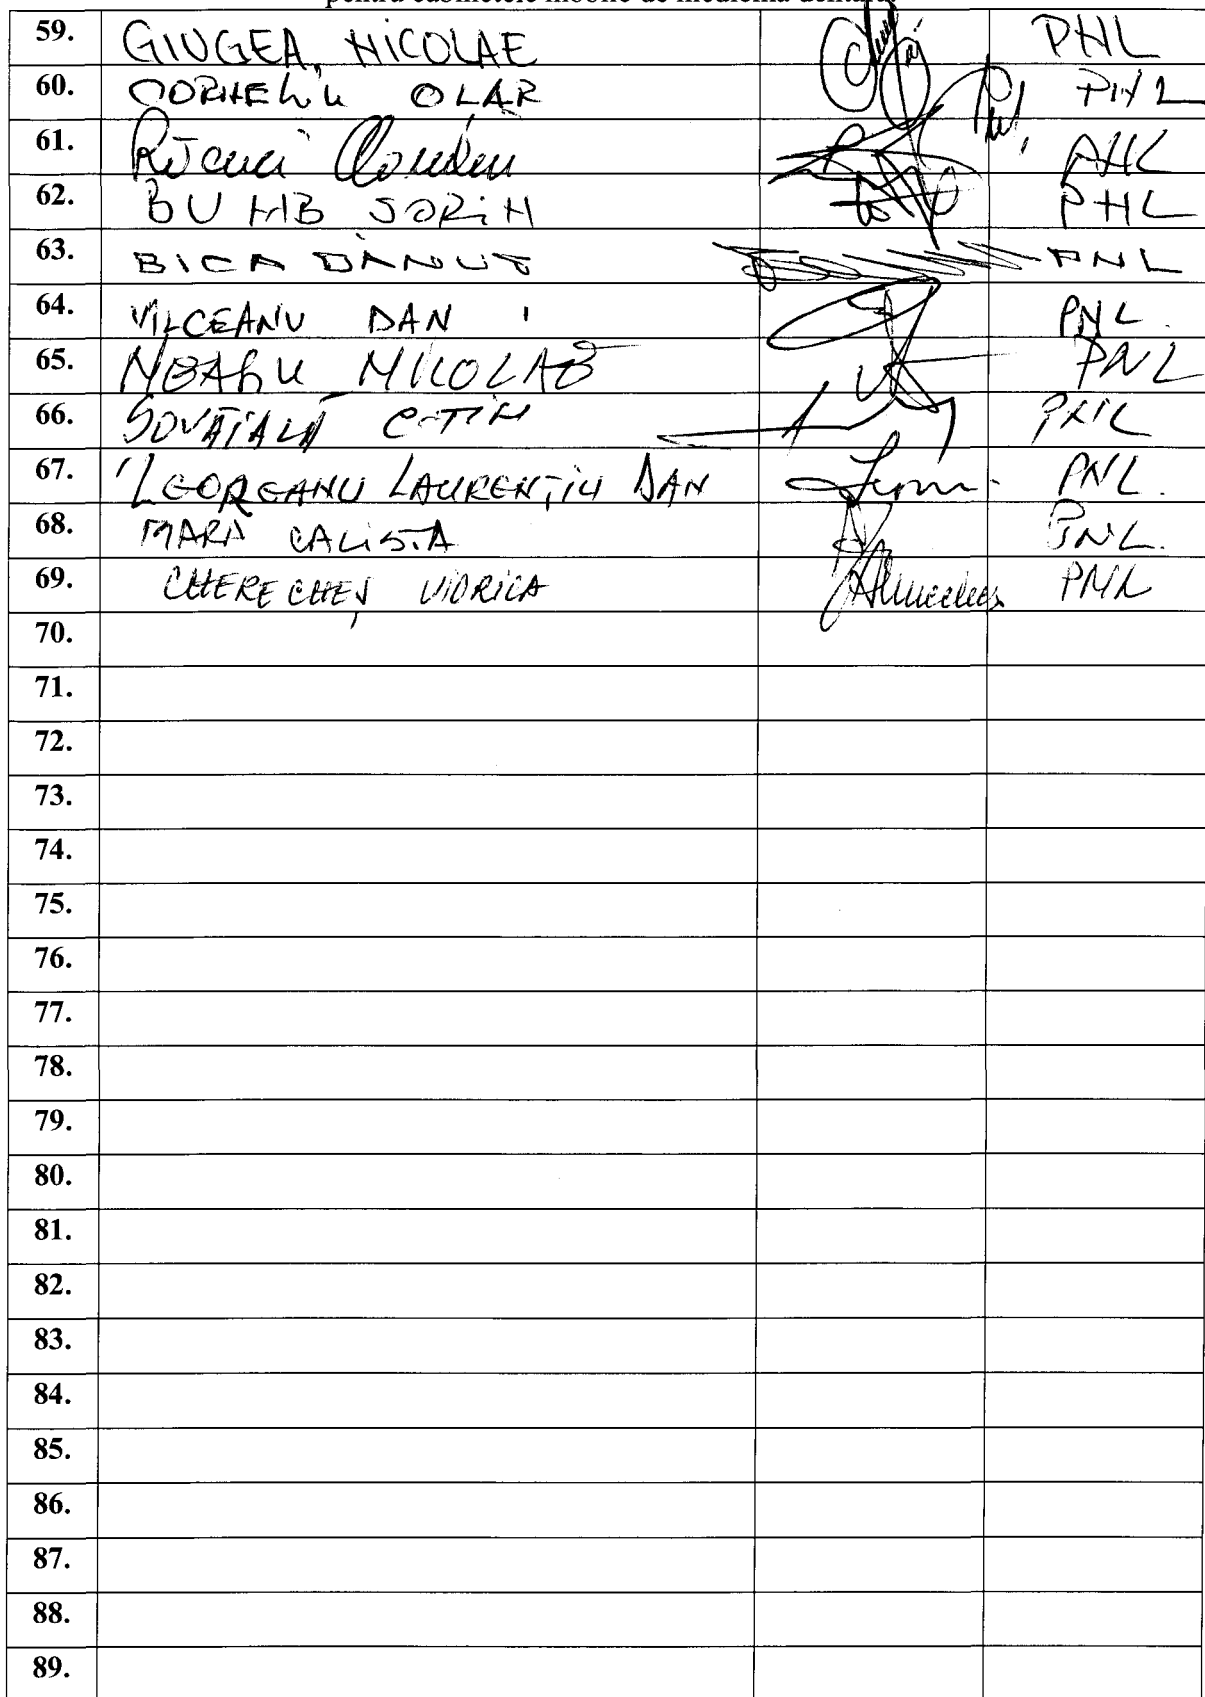 pentru cabinetele mobile de medicina dentara
59. GIUGEA NICOLAE PNL
60. CORNELIU OLAR PNL
61. PNL
62. BUMB SORIN PNL
63. BICA DANUT PNL
64. VILCEANU DAN PNL
65. NEAGU NICOLAE PNL
66. SOVĂIALĂ PNL
67. LEOREANU LAURENȚIU DAN PNL.
68. MARA CALISTA PNL.
69. CHERECHEȘ VIORICA PNL
70.
71.
72.
73.
74.
75.
76.
77.
78.
79.
80.
81.
82.
83.
84.
85.
86.
87.
88.
89.